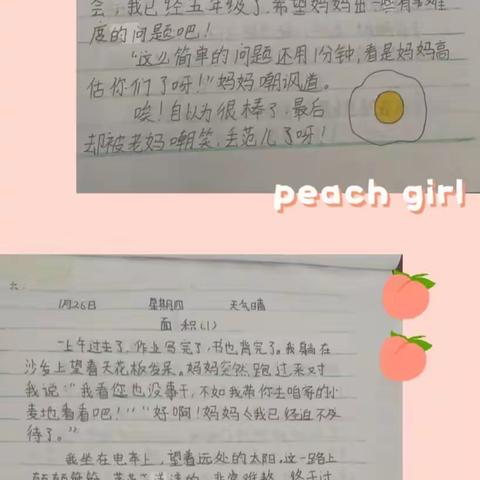 会，我已经五年级了，希望妈妈出一些有难
度的问题吧！
“这么简单的问题还用1分钟，看是妈妈高
估你们了呀！”妈妈嘲讽道。
唉！自以为很棒了，最后
却被老妈嘲笑，丢范儿了呀！
peach girl
六.
1月26日 星期四 天气晴
面积(1)
上午过去了，作业写完了，书也背完了。我躺在
沙发上望着天花板发呆。妈妈突然跑过来对
我说：“我看你也没事干，不如我带你去咱家的小
麦地看看吧！”“好啊！妈妈我已经迫不及
待了。”
我坐在电车上，望着远处的太阳，这一路上